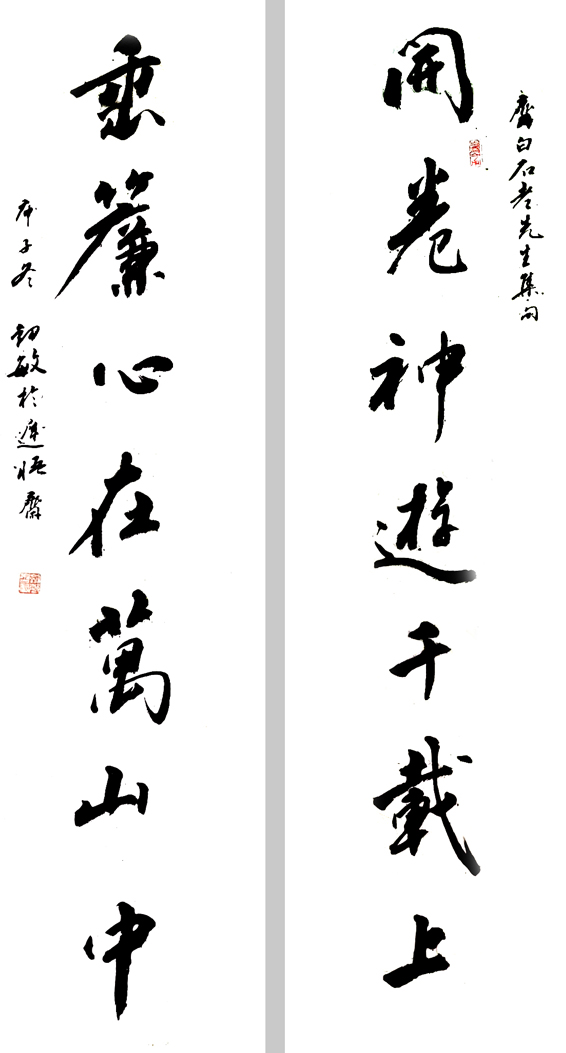 齊白石老先生集句
開卷神遊千載上
垂簾心在萬山中
庚子冬 敏於遲悟齋